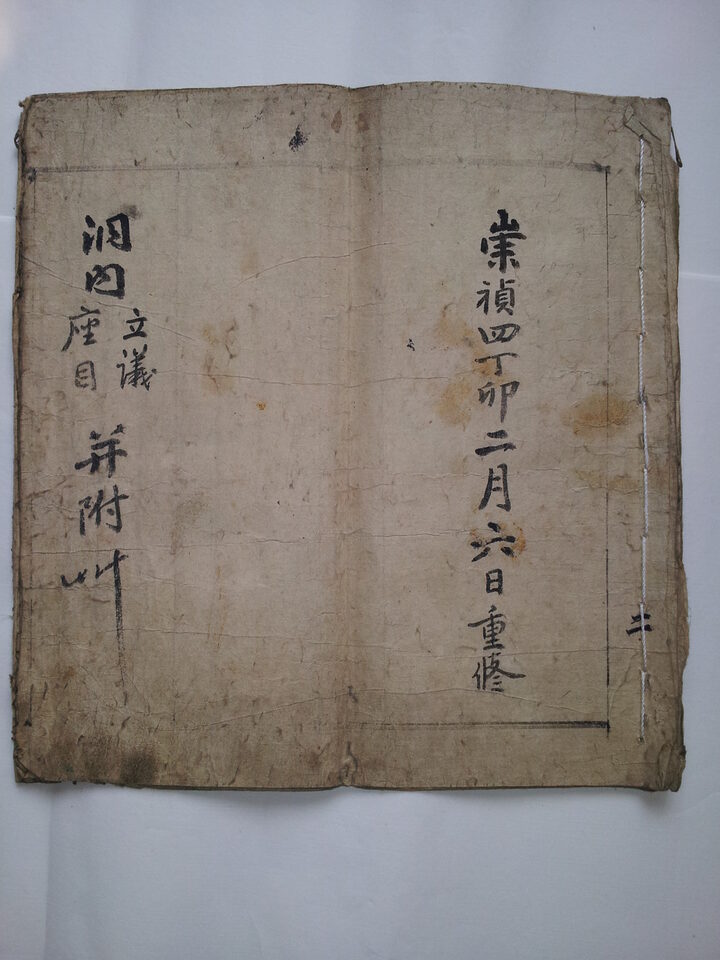 崇禎四丁卯二月六日重修
洞内
立議
座目
并附艸